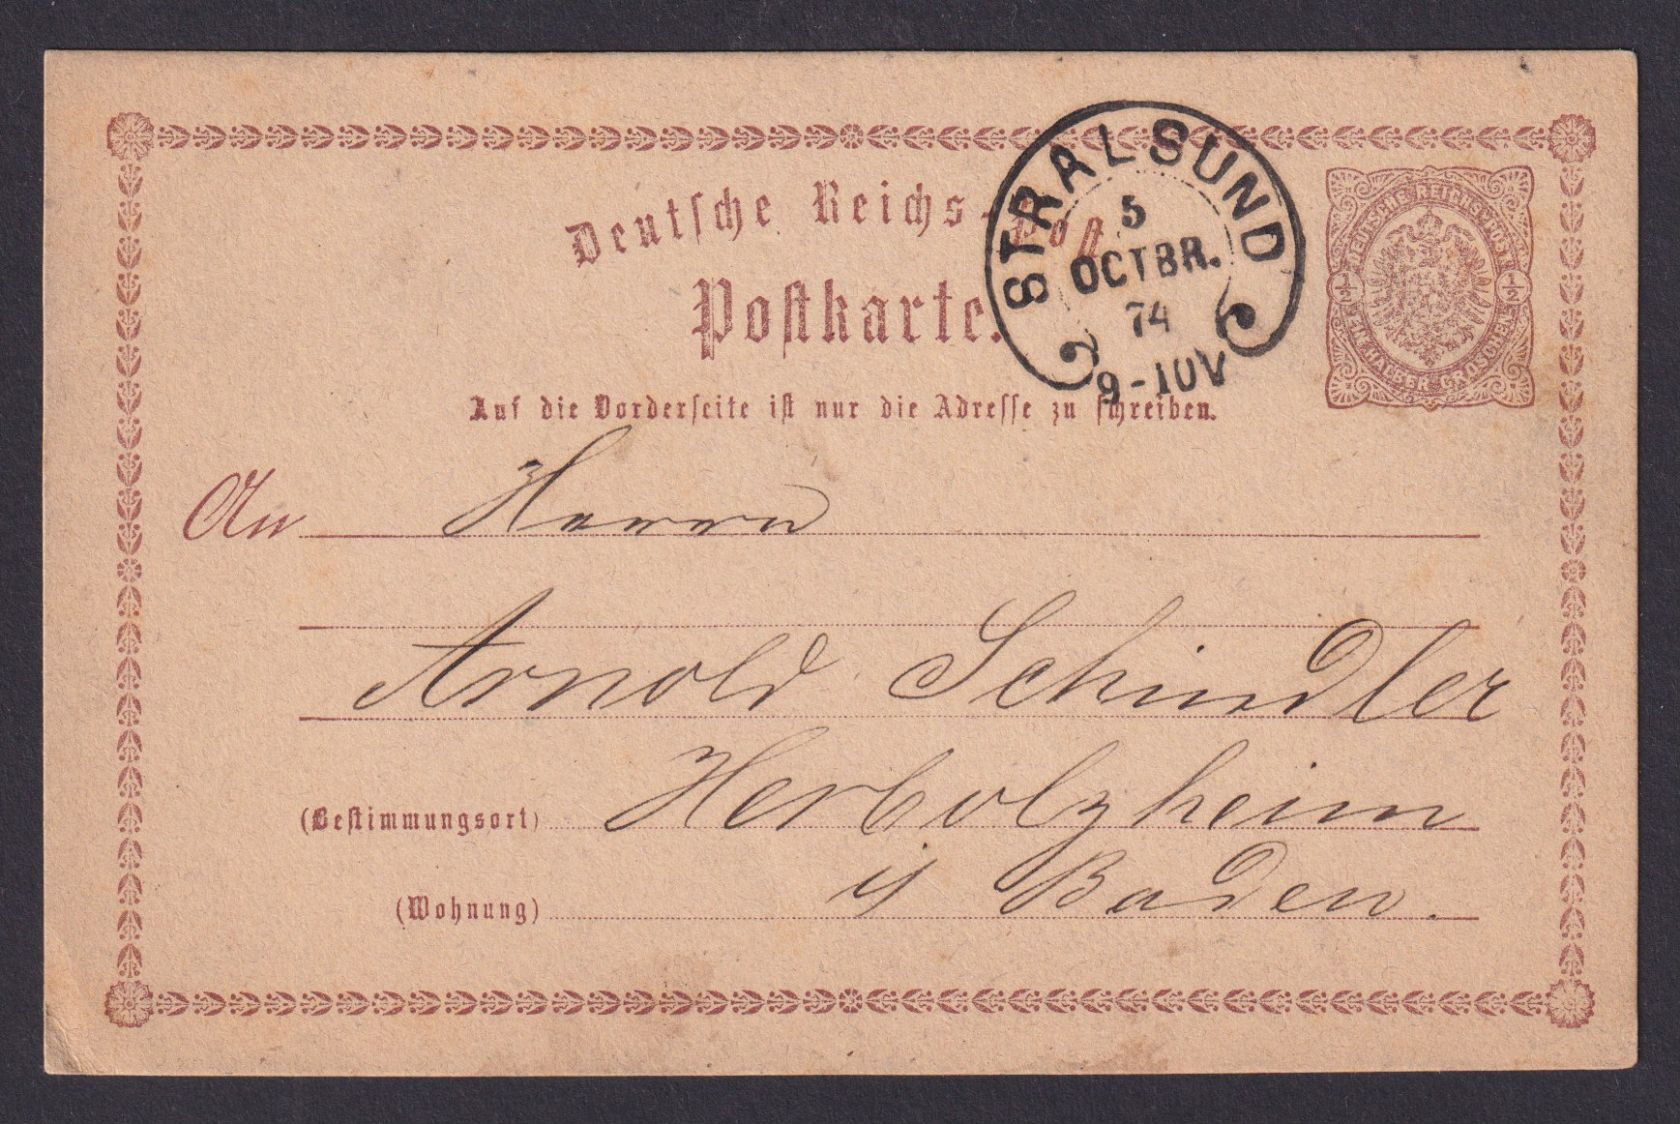 Deutsche Reichs-Post
Postkarte.
STRALSUND
5
OCTBR.
74
9-10V
DEUTSCHE REICHSPOST
½ ½
EIN HALBER GROSCHEN
Auf die Vorderseite ist nur die Adresse zu schreiben.
An Herrn
Arnold Schindler
(Bestimmungsort) Herbolzheim
(Wohnung) i/ Baden.